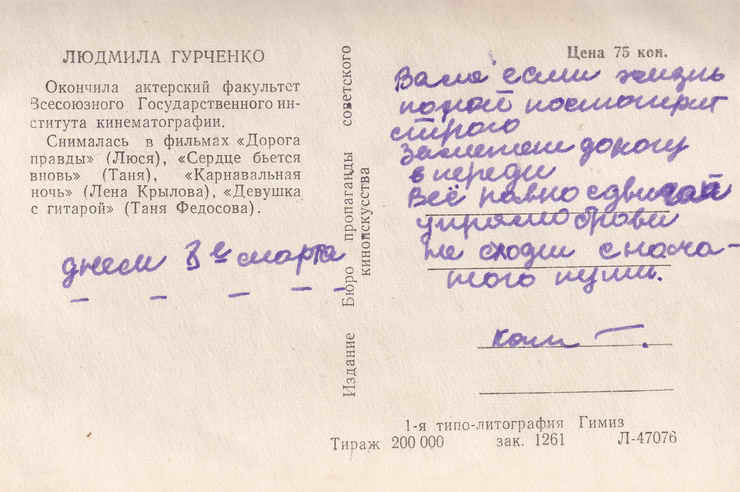 ЛЮДМИЛА ГУРЧЕНКО
Окончила актерский факультет
Всесоюзного Государственного ин-
ститута кинематографии.
Снималась в фильмах «Дорога
правды» (Люся), «Сердце бьется
вновь» (Таня), «Карнавальная
ночь» (Лена Крылова), «Девушка
с гитарой» (Таня Федосова).
днем 8е марта
Издание Бюро пропаганды советского
киноискусства
Цена 75 коп.
Валя если жизнь
порой посмотрит
строго
Заметет дорогу
в переди
Всё равно сдвигай
упрямо брови
Не сходи с нача-
того пути.
1-я типо-литография Гимиз
Тираж 200 000 зак. 1261 Л-47076